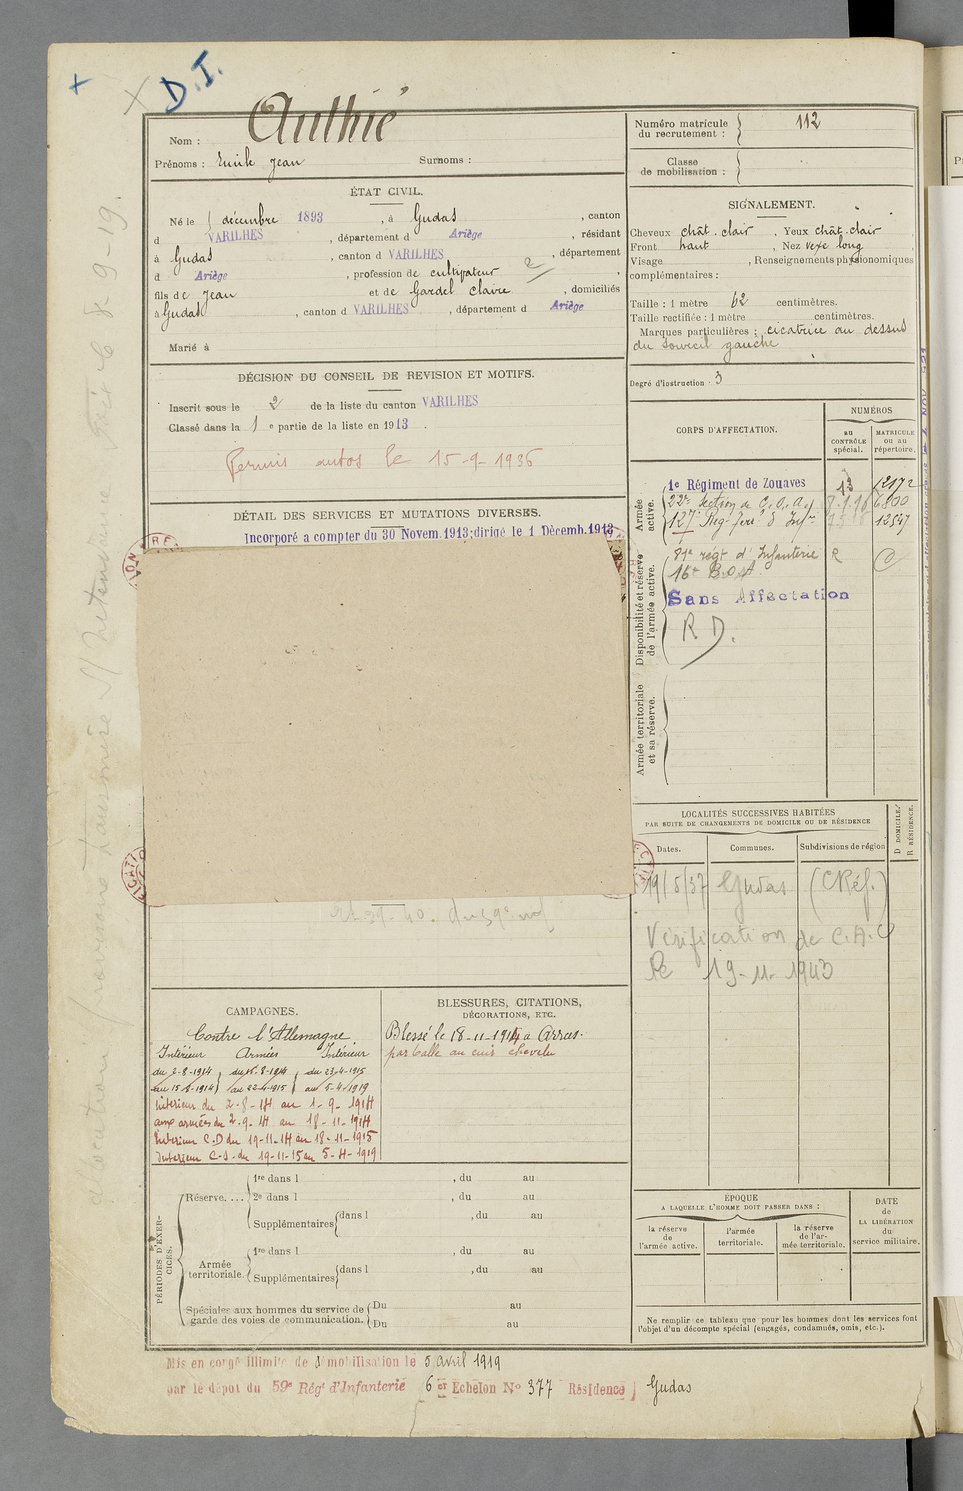 D.I.
Authié
Nom :
Prénoms : Emile Jean Surnoms :
Numéro matricule
du recrutement : 112
Classe
de mobilisation :
ÉTAT CIVIL.
Né le décembre 1893, à Gudas, canton
d VARILHES, département d Ariège, résidant
à Gudas, canton d VARILHES, département
d Ariège, profession de cultivateur
fils de Jean et de Gardel Claire, domiciliés
à Gudas, canton d VARILHES, département d Ariège
Marié à
SIGNALEMENT.
Cheveux chât. clair, Yeux chât. clair
Front haut, Nez long
Visage , Renseignements physionomiques
complémentaires :
Taille : 1 mètre 62 centimètres.
Taille rectifiée : 1 mètre centimètres.
Marques particulières : cicatrice au dessus
du sourcil gauche
Degré d'instruction : 3
DÉCISION DU CONSEIL DE REVISION ET MOTIFS.
Inscrit sous le 2 de la liste du canton VARILHES
Classé dans la 1e partie de la liste en 1913.
Permis autos le 15-9-1936
DÉTAIL DES SERVICES ET MUTATIONS DIVERSES.
Incorporé a compter du 30 Novem. 1913; dirigé le 1 Décemb. 1913
CORPS D'AFFECTATION.
NUMÉROS
au
CONTRÔLE
spécial.
MATRICULE
ou au
répertoire.
Armée
active.
1e Régiment de Zouaves 13 12172
22e Section de C.O.A. 6800
127e Reg. Ter. d'Inf. 12547
Disponibilité et réserve
de l'armée active.
81e régt d'Infanterie R
16e
Sans Affectation
R D.
Armée territoriale
et sa réserve.
LOCALITÉS SUCCESSIVES HABITÉES
PAR SUITE DE CHANGEMENTS DE DOMICILE OU DE RÉSIDENCE
Dates.
Communes.
Subdivisions de région
D DOMICILE.
R RÉSIDENCE.
19/5/37 Gudas (Réf.)
Vérification de C.A.
le 19-11-1943
CAMPAGNES.
Contre l'Allemagne
Intérieur Armées Intérieur
du 2-8-1914 du 15-8-1914 du 23-4-1915
au 15-8-1914 au 22-4-1915 au 5-4-1919
Intérieur du 2-8-14 au 1-9-1914
aux armées du 2-9-14 au 18-11-1914
Intérieur C.D du 19-11-14 au 18-11-1915
Intérieur C.S. du 19-11-15 au 5-4-1919
BLESSURES, CITATIONS,
DÉCORATIONS, ETC.
Blessé le 18-11-1914 à Arras.
par balle au cuir chevelu
PÉRIODES D'EXER-
CICES.
Réserve. ...
1re dans l , du au
2e dans l , du au
Supplémentaires dans l , du au
Armée
territoriale.
1re dans l , du au
Supplémentaires dans l , du au
Spéciales aux hommes du service de
garde des voies de communication.
Du au
Du au
ÉPOQUE
A LAQUELLE L'HOMME DOIT PASSER DANS :
la réserve
de
l'armée active.
l'armée
territoriale.
la réserve
de l'ar-
mée territoriale.
DATE
de
LA LIBÉRATION
du
service militaire.
Ne remplir ce tableau que pour les hommes dont les services font
l'objet d'un décompte spécial (engagés, condamnés, omis, etc.).
Mis en congé illimité de démobilisation le 5 avril 1919
par le dépôt du 59e Régt d'Infanterie 6 et Echelon No 377 Résidence Gudas